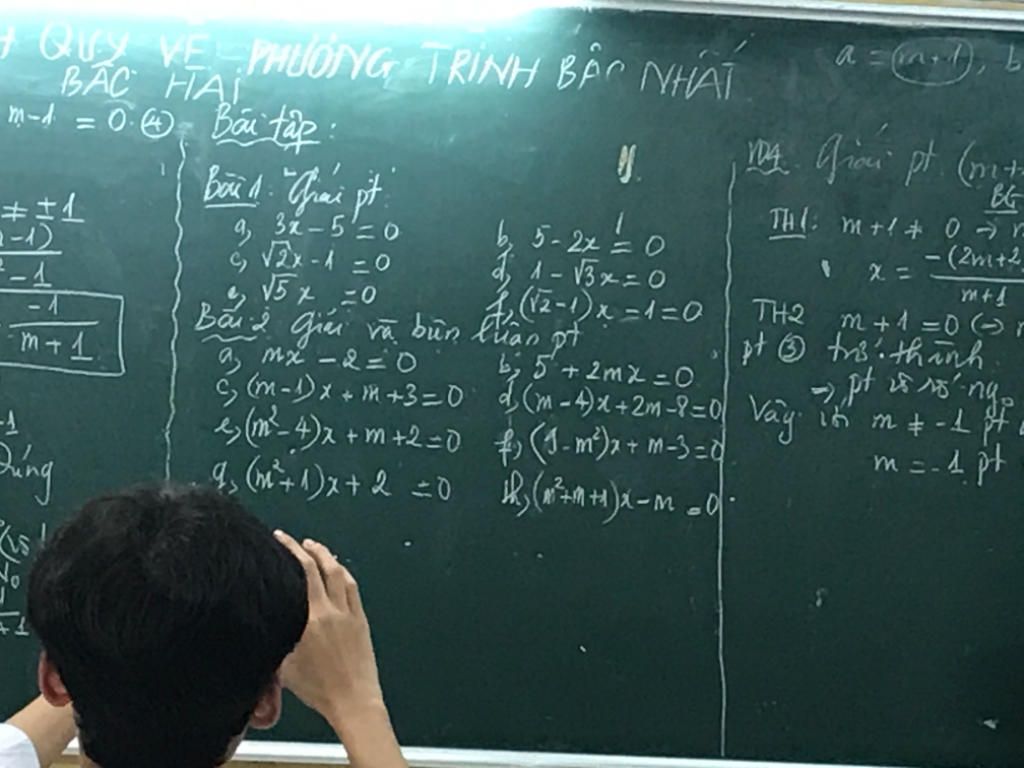 QUY VỀ PHƯƠNG TRÌNH BẬC NHẤT
BẬC HAI
m-1 = 0 (4)
≠ ±1
-1
m+1
-1
Đúng
Bài tập:
Bài 1: "Giải pt"
a, 3x - 5 = 0
b, 5 - 2x = 0
c, √2x - 1 = 0
d, 1 - √3x = 0
e, √5 x = 0
f, (√2-1)x = 1 = 0
Bài 2 Giải và biện luận pt
a, mx - 2 = 0
b, 5 + 2mx = 0
c, (m-1)x + m + 3 = 0
d, (m-4)x + 2m - 8 = 0
e, (m²-4)x + m + 2 = 0
f, (1-m²)x + m - 3 = 0
g, (m²+1)x + 2 = 0
h, (m²+m+1)x - m = 0
a = m+1, b
Giải pt (m+
BG
TH1: m+1 ≠ 0
x = -(2m+2
m+1
TH2 m+1 = 0
pt (3) trở thành
pt vô số ng
Vậy với m ≠ -1 pt
m = -1 pt